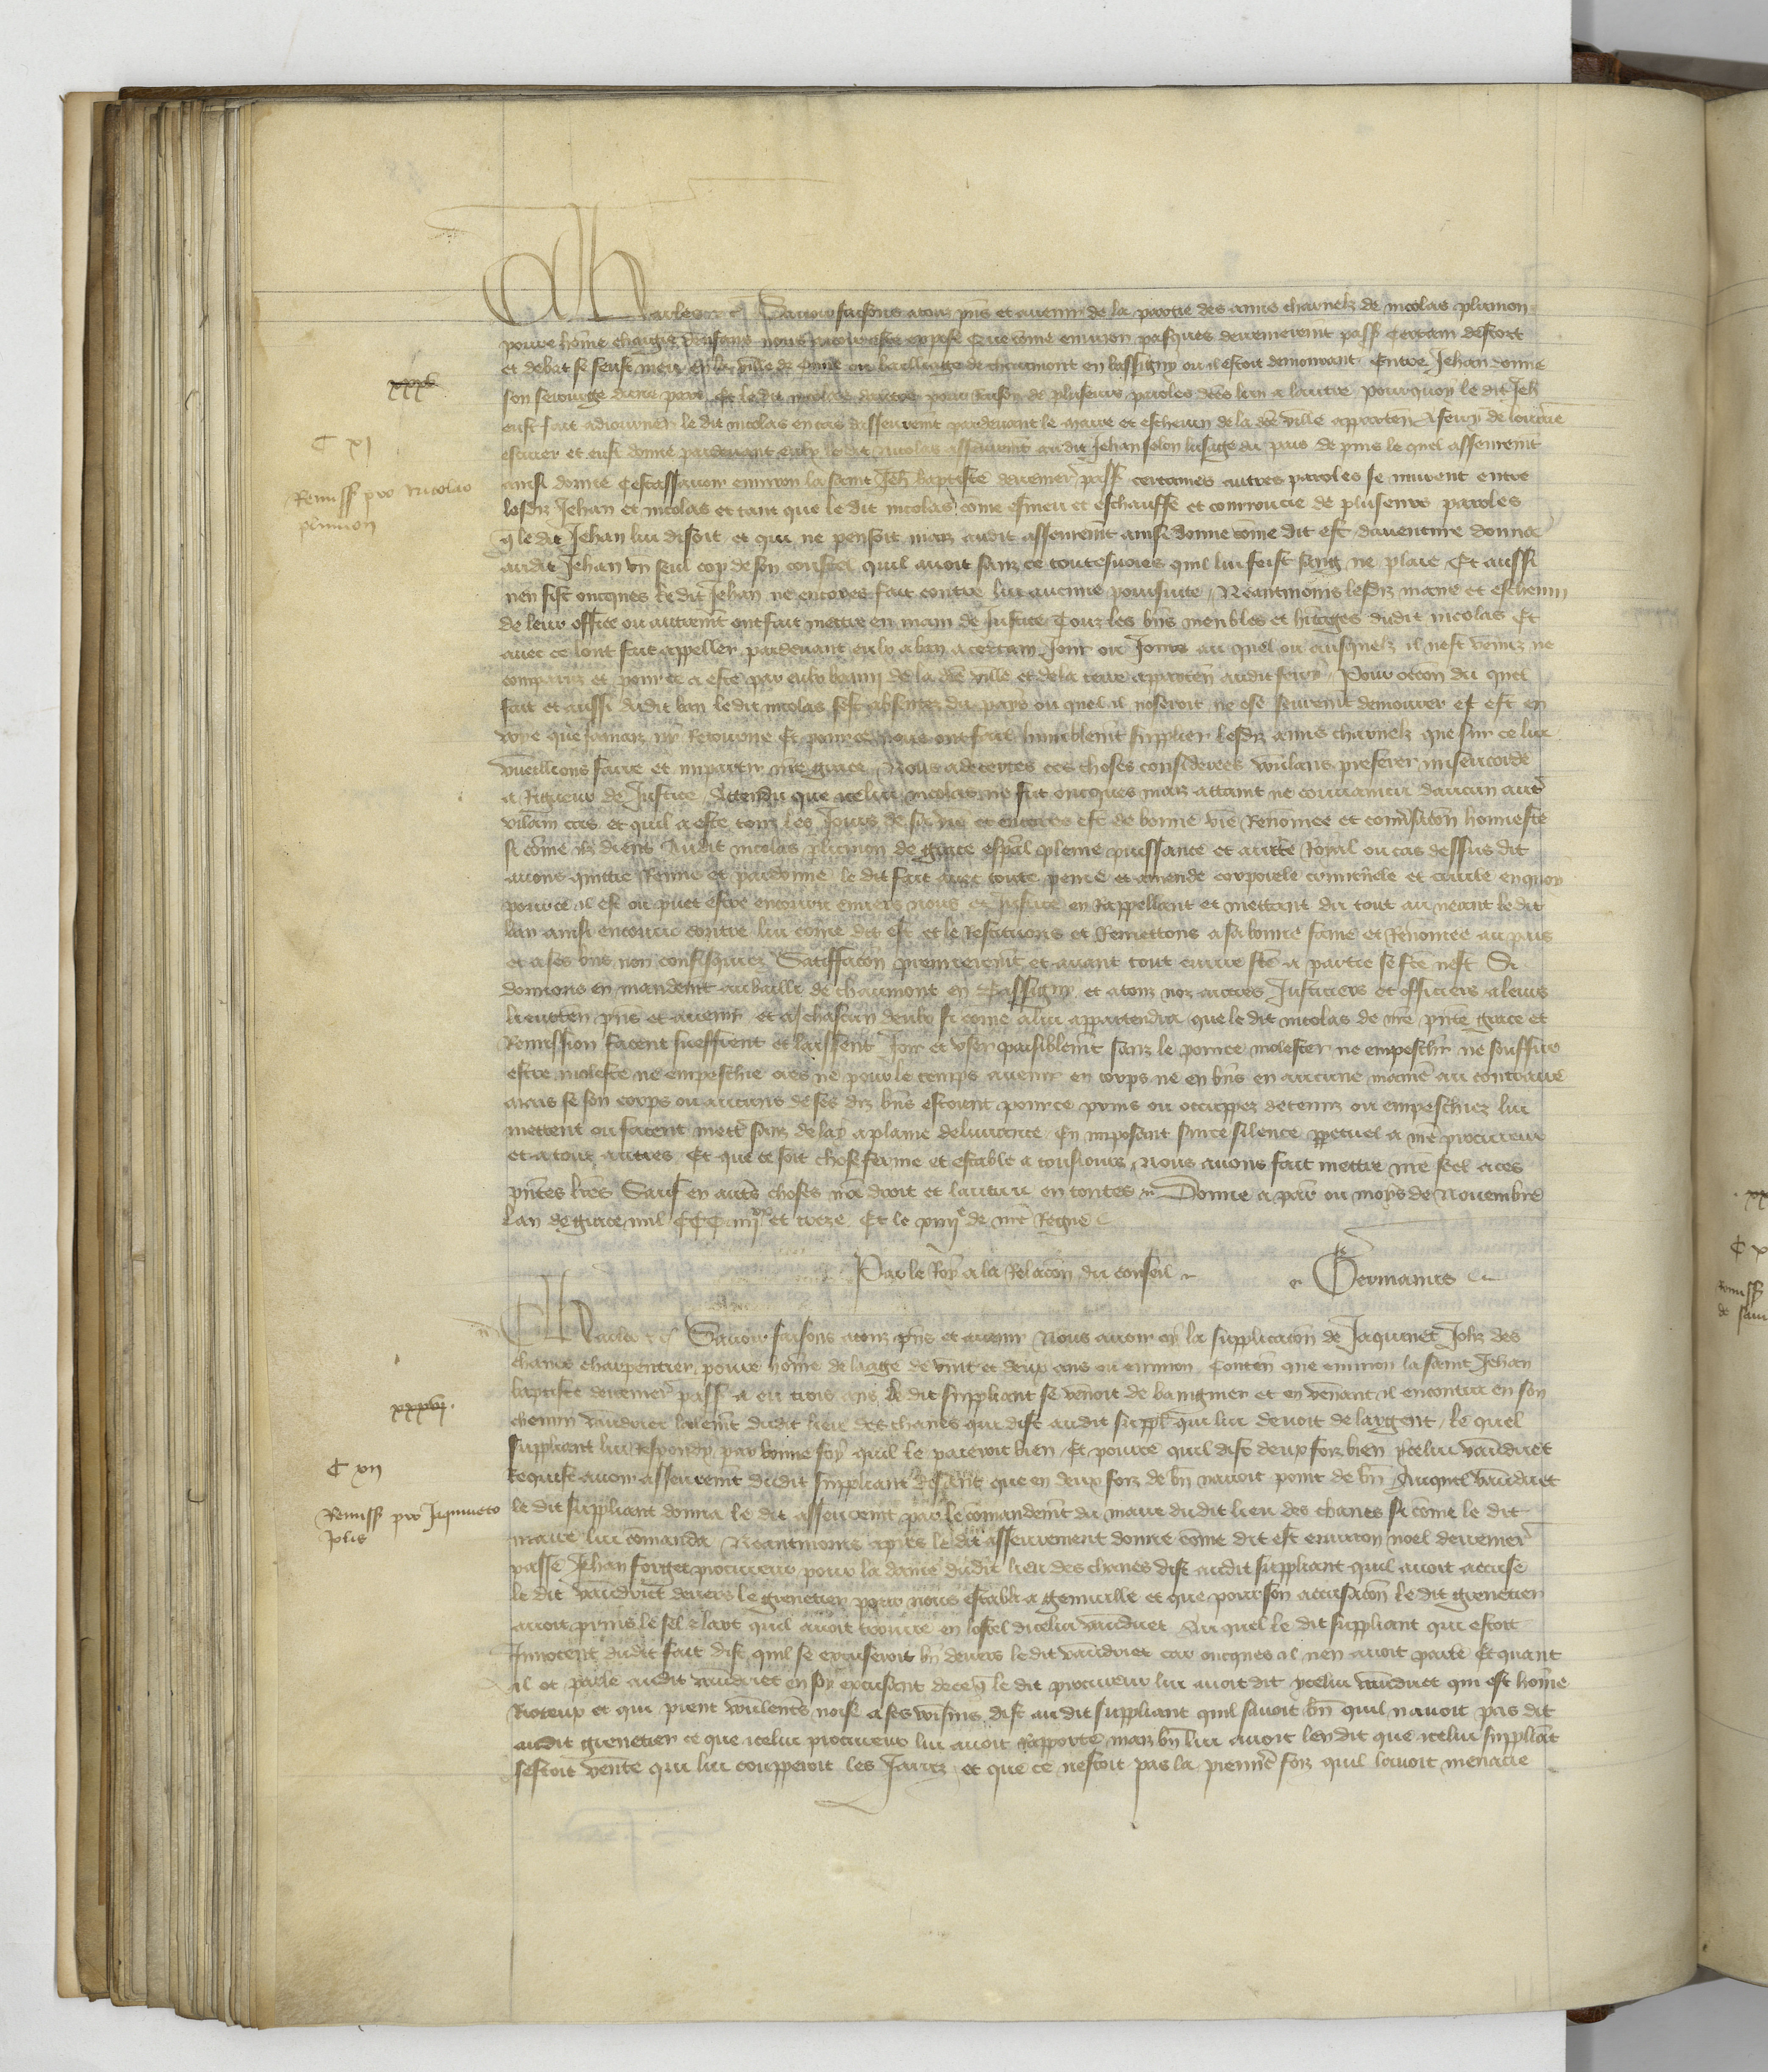 Charles etc. Savoir faisons a touz pñs et avenir de la partie des amis charnelz de Nicolas plumon
povre hõme chargié denfans nous avoir esté exposé Que cõme environ pasques derrenierement pass̃ Certain descort
et debat se feust meu en la ville de ou bailliage de chaumont en bassigny ou il estoit demourant Entre Jehan
son serourge dune part Et le dit nicolas dautre pour raison de pluseurs paroles dc̃es lun a lautre pourquoy le dit Jeh̃
eust fait adiourner le dit nicolas en cas dasseurem̃t pardevant le maire et eschevin de la dc̃e ville apparteñ
et eust donné pardevant eulx le dit nicolas asseurem̃t au dit Jehan selon lusage du pais le quel asseurem̃t
ainsi donné Cestassavoir environ la saint Jeh̃ baptiste derrenier̃ pass̃ certaines autres paroles se murent entre
lesdiz Jehan et nicolas et tant que le dit nicolas cõme esmeu et eschauffé et courroucié de pluseurs paroles
q̃ le dit Jehan lui disoit et qui ne pensoit maiz avoit asseurem̃t ainsi donné cõme dit est daventure donna
audit Jehan un seul cop de son coustel quil avoit sanz ce toutesvoies quil lui feist sang ne plaie Et aussi
nen fist oncques le dit Jehan ne encores fait contre lui aucune poursuite Neantmoins lesdiz maire et eschevin
de leur office ou autrem̃t ont fait mettre en main de Justice Touz les bñs meubles et hitages dudit nicolas Et
avec ce lont fait appeller pardevant eulx a ban a certain Jour ou Jours au quel ou ausquelz il nest venuz ne
comparuz et pour ce a esté par eulx banny de la dc̃e ville et de la terre apparteñ audit seigñr Pour occõn du quel
fait et aussi dudit ban le dit nicolas sest absentez du pays ou quel il noseroit ne ose seurem̃t demourer et est en
voye que Jamaiz ny Retourne Et pource nous ont fait humblem̃t supplier lesdiz amis charnelz que sur ce lui
vueillions faire et impartir nr̃e grace Nous adecertes ces choses considerees voulans preferer misericorde
a Rigueur de Justice Attendu que icelui nicolas ne fut oncques maiz attaint ne convaincu daucun autr̃
vilain cas et quil a esté touz les Jours de sa vie et encores est de bonne vie Renõmee et conv̾sacõn honneste
si cõme ilz dient Audit nicolas plumon de grace esp̃al pleine puissance et aucto̾ité Royal ou cas dessus dit
avons quittié Remis et pardonné le dit fait avec toute peine et amende corporele criminele et civile en quoy
pour ce il est ou puet estre encouru envers nous et Justice en Rappellant et mettant du tout au neant le dit
ban ainsi encouru contre lui cõme dit est et le Restituons et Remettons a sa bonne fame et Renõmee au pais
et a ses bñs non confisquiez Satisfacõn premierem̃t et avant tout euvre fc̃e a partie se fc̃e nest Si
donnons en mandem̃t au bailli de chaumont en Bassigny et a touz noz autres Justiciers et officiers a leurs
lieuxteñ pñs et avenir et a chascun deulx si cõme a lui appartendra que le dit nicolas de nr̃e pñte grace et
Remission facent sueffrent et laissent Joir et user paisiblem̃t sanz le pource molester ne empeschier ne souffrir
estre molesté ne empeschié ores ne pour le temps avenir en corps ne en bñs en aucune mañe au contraire
Maiz se son corps ou aucuns de ses diz bñs estoient pour ce prins ou occuppez detenuz ou empeschiez lui
mettent ou facent mett̃ sanz delay a plaine delivrance En imposant sur ce silence ppetuel a nr̃e procureur
et a tous autres Et que ce soit chose ferme et estable a tousjours Nous avons fait mettre nr̃e seel a ces
pñtes lr̃es Sauf en autr̃s choses nr̃e droit et lautrui en toutes Donné a par̃ ou moys de Novembre
Lan de grace mil CCC iiii^xx et treze Et le xiiii^e de nr̃e Regne
Par le Roy a la Relacõn du conseil Germanus
Charles etc. Savoir faisons a touz pñs et avenir Nous avoir oy la supplicacõn de Jaquinet Joliz des
chanes charpentier povre hõme de laage de vint et deux ans ou environ Conteñ que environ la saint Jehan
baptiste derrenier̃ pass̃ a eu trois ans le dit suppliant se venoit de baignier et en venant il encontra en son
chemin vaudriet dudit lieu des chanes qui dist audit suppl̃ qui lui devoit de largent Le quel
suppliant lui Respondy par bonne foy quil le paieroit bien Et pource quil dist deux foiz bien ycelui vaudriet
Requist avoir asseurem̃t dudit suppliant disant que en deux foiz de bñ navoit point de bñ Auquel vaudriet
le dit suppliant donna le dit asseurem̃t par le cõmandem̃t du maire dudit lieu des chanes si cõme le dit
maire lui cõmanda Neantmoins apres le dit asseurement donné cõme dit est environ noel derrenier̃
passé Jehan forget procureur pour la dame dudit lieu des chanes dist audit suppliant quil avoit accusé
le dit vaudriet devers le grenetier pour nous establi a Genville et que pour son accusacõn le dit grenetier
avoit prins le sel & lart quil avoit trouvé en lostel dicelui vaudriet Au quel le dit suppliant qui estoit
Innocent dudit fait dist quil se excuseroit bñ devers le dit vaudriet car oncques il nen avoit parlé Et quant
il ot parlé audit vaudriet en soy excusant de ce q̃ le dit procureur lui avoit dit ycelui vaudriet qui est hõme
Rioteux et qui prent voulentiers noise a ses voisins dist au dit suppliant quil savoit bñ quil navoit pas dit
audit grenetier ce que icelui procureur lui avoit rapporté maiz bñ lui avoit len dit que icelui suppliãt
sestoit venté qui lui coupperoit les Jarrez et que ce nestoit pas la premiere foiz quil lavoit menacié
xxxv
C xj
Remiss̃ pro Nicolao
plumon
xxxvj.
C xij
Remiss̃ pro Jaquineto
Joliz